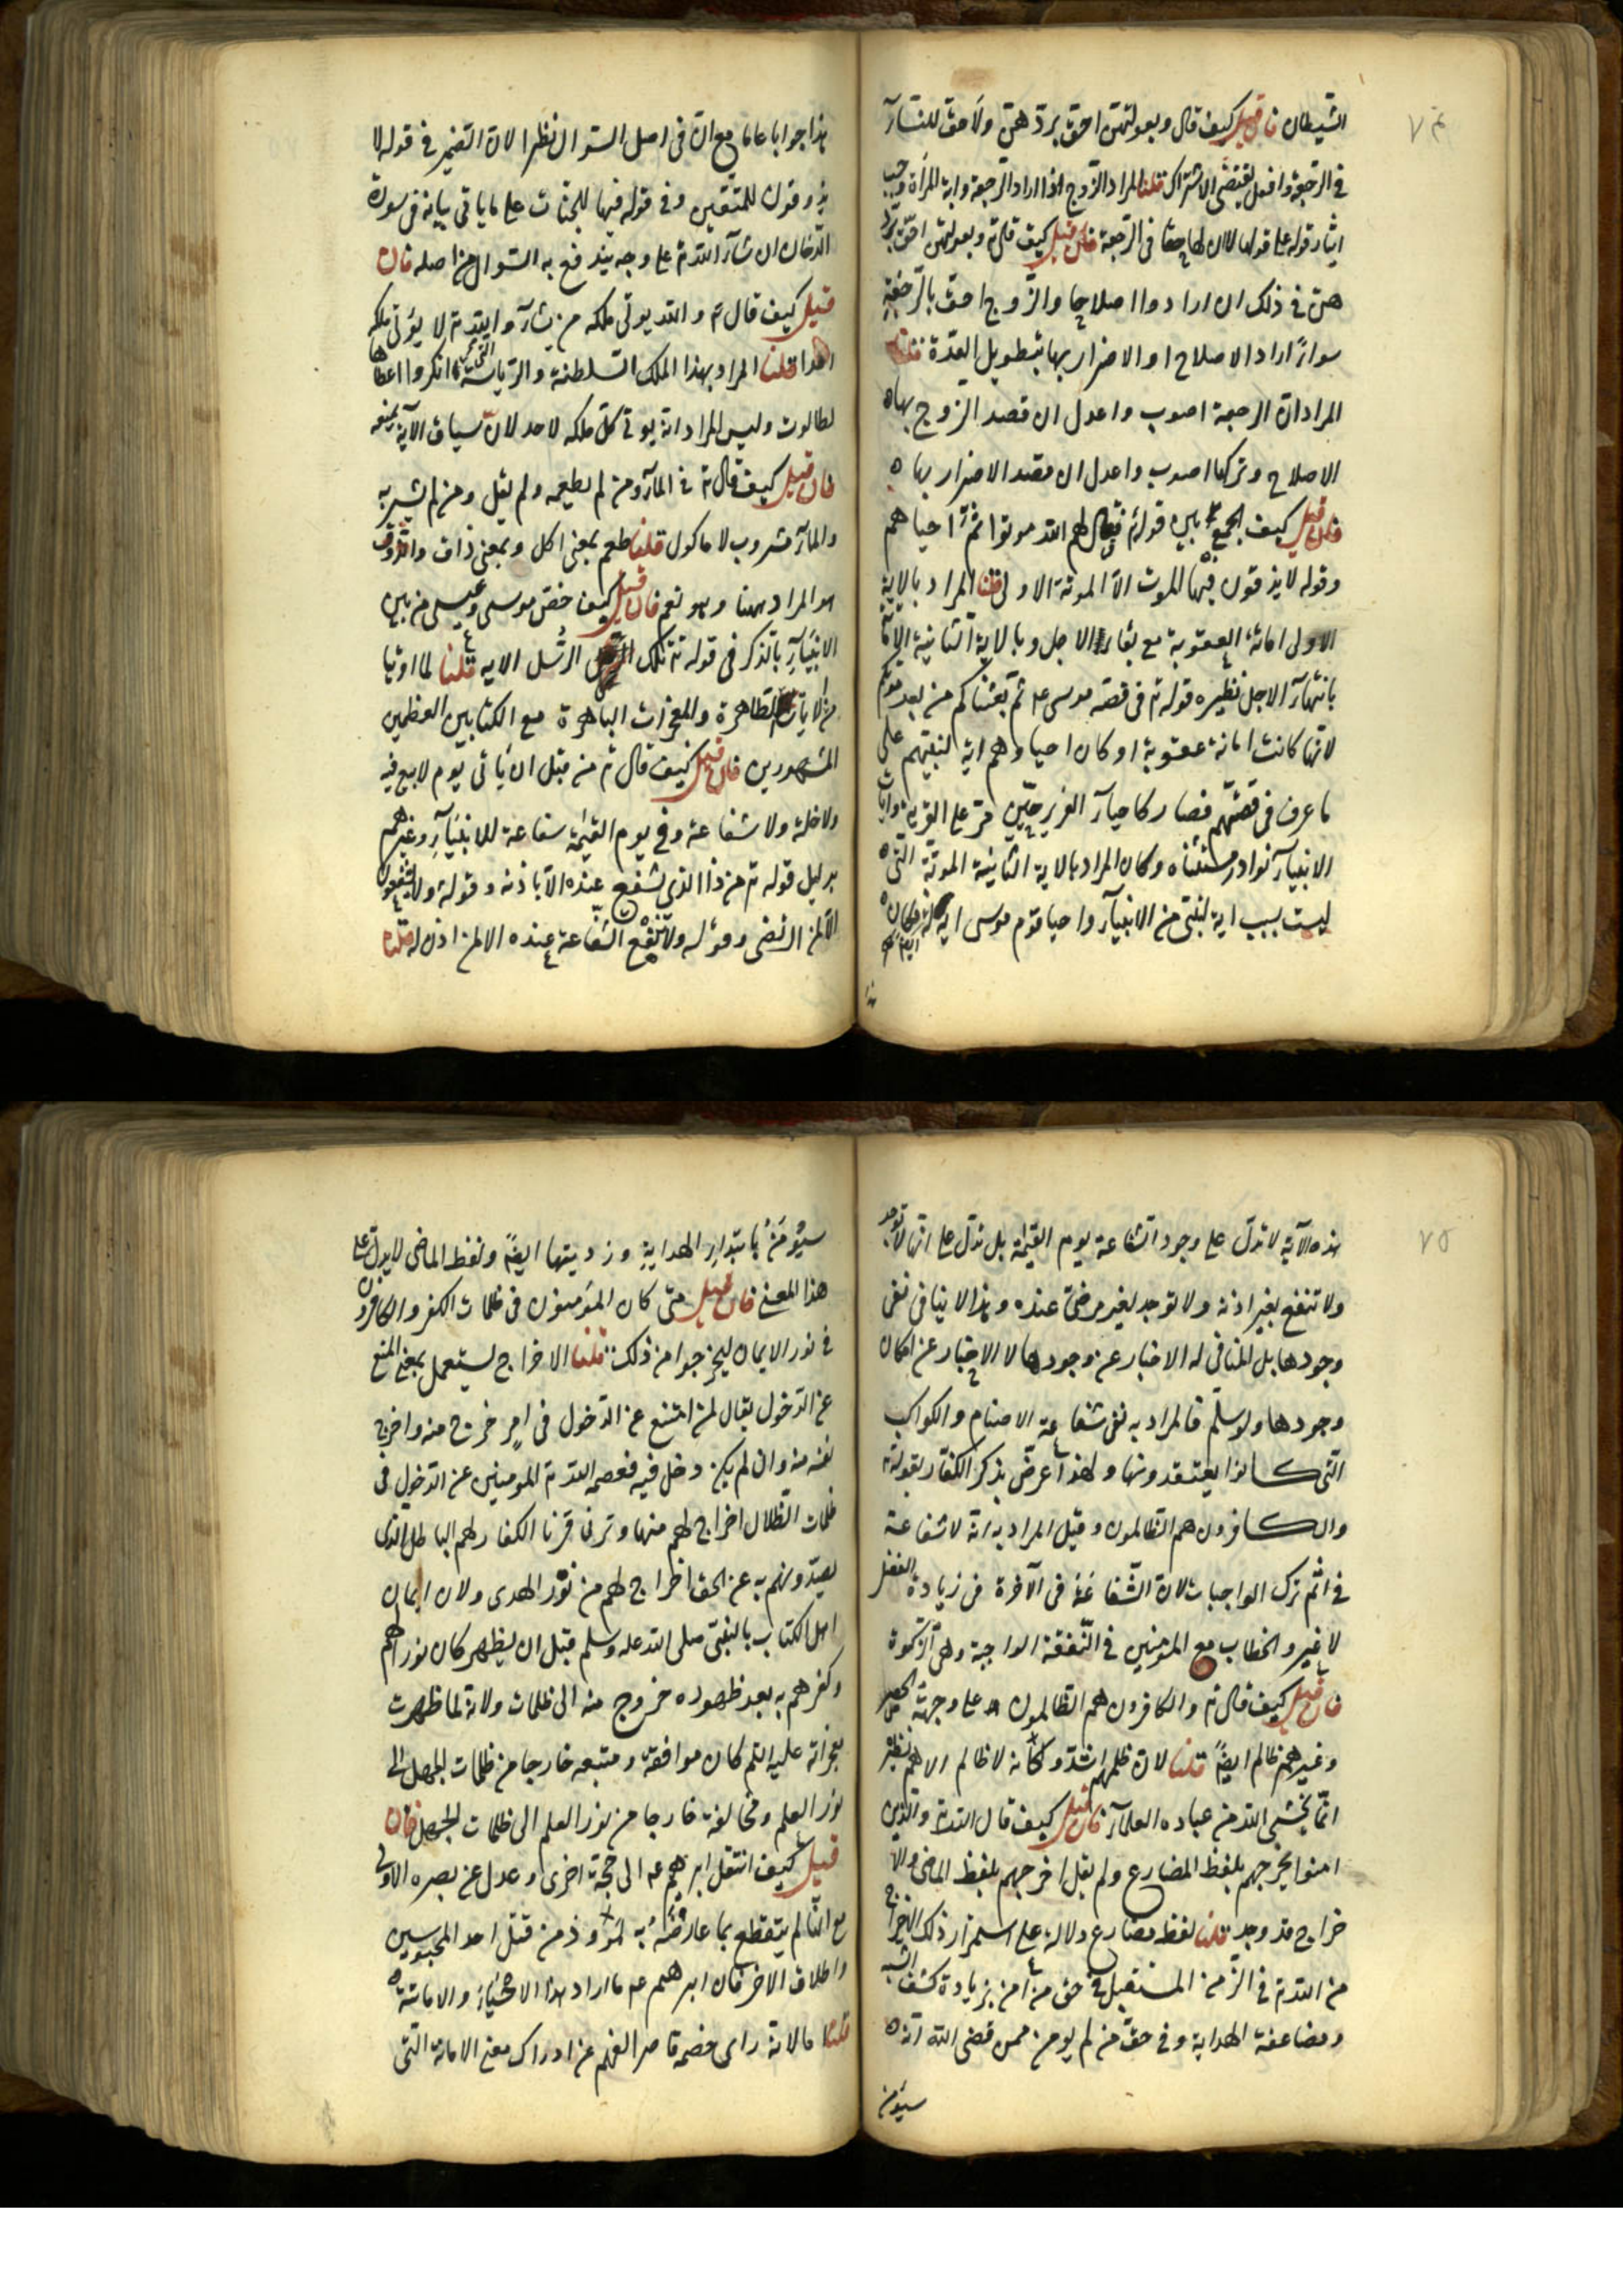 ٧٤
الشيطان فان قيل كيف قال وبعولتهن احق بردهن ولا حق للنساء
في الرجعة وافعل يقتضى الاشتراك قلنا المراد الزوج اذا اراد الرجعة وابت المرأة وجب
ايثار قوله على قولها لا ان لها حقا في الرجعة فان قيل كيف قال تم وبعولتهن احق برد
هن في ذلك ان ارادوا اصلاحا والزوج احق بالرجعة
سواء اراد الاصلاح او الاضرار بها بتطويل العدة قلنا
المراد ان الرجعة اصوب واعدل ان قصد الزوج بها
الاصلاح وتركها اصوب واعدل ان قصد الاضرار بها
فان قيل كيف الجمع بين قوله تم فقال لهم الله موتوا ثم احياهم
وقوله لا يذوقون فيها الموت الا الموتة الاولى قلنا المراد بالاية
الاولى اماتة العقوبة مع بقاء الاجل وبالاية الثانية الاماتة
بانتهاء الاجل نظيره قوله تم في قصة موسى عم ثم بعثناكم من بعد موتكم
لانها كانت اماتة عقوبة او كان احياوهم اية لنبيهم على
ما عرف في قصتهم فصار كاحياء العزير حين مر على القرية وايات
الانبياء نوادر مستثناه وكان المراد بالاية الثانية الموتة التى
ليست بسبب اية لنبى من الانبياء واحيا قوم موسى اية له
هذا
هذا جوابا عاما مع ان في اصل السؤال نظرا لان الضمير في قوله لا
يذوقون للمتقين وفي قوله فيها للجنات على ما ياتي بيانه في سورة
الدخان ان شاء الله تم على وجه يندفع به السؤال من اصله فان
قيل كيف قال تم والله يوتى ملكه من يشاء والله تم لا يؤتى ملكه
احدا قلنا المراد بهذا الملك السلطنة والرياسة التى انكروا اعطاها
لطالوت وليس المراد انه يوتى كل ملكه لاحد لان سياق الآية يمنعه
فان قيل كيف قال تم في الماء ومن لم يطعمه ولم يقل ومن لم يشربه
والماء مشروب لا ماكول قلنا طعم بمعنى اكل وبمعنى ذاق والذوق
هو المراد ههنا وهو نعم فان قيل كيف خص موسى وعيسى من بين
الانبياء بالذكر في قوله تم تلك الرسل الايه قلنا لما اوتيا
من الايات الظاهرة والمعجزات الباهرة مع الكتابين العظمين
المشهورين فان قيل كيف قال تم من قبل ان يأتى يوم لا بيع فيه
ولا خلة ولا شفاعة وفي يوم القيمة شفاعة للانبياء وغيرهم
بدليل قوله تم من ذا الذى يشفع عنده الا باذنه وقوله ولا يشفعون
الا لمن ارتضى وقوله ولا تنفع الشفاعة عنده الا لمن اذن له قلنا
٧٥
هذه الآية لا تدل على وجود الشفاعة يوم القيمة بل تدل على انها لا توجد
ولا تنفع بغير اذنه ولا توجد لغير مرضى عنده وهذا لا ينافى نفى
وجودها بل المنافى له الاخبار عن وجودها لا الاخبار عن امكان
وجودها ولو سلم فالمراد به نفى شفاعة الاصنام والكواكب
التى كانوا يعتقدونها ولهذا عرض بذكر الكفار بقوله تم
والكافرون هم الظالمون وقيل المراد به انه لا شفاعة
في اثم ترك الواجبات لان الشفاعة في الآخرة في زيادة الفضل
لا غير والخطاب مع المؤمنين في النفقة الواجبة وهى الزكوة
فان قيل كيف قال تم والكافرون هم الظالمون على وجه الحصر
وغيرهم ظالم ايضا قلنا لان ظلمهم اشد وكانه لا ظالم الا هم نظيره
انما يخشى الله من عباده العلماء فان قيل كيف قال الله تم والذين
امنوا يخرجهم بلفظ المضارع ولم يقل اخرجهم بلفظ الماضى والا
خراج قد وجد قلنا لفظ مضارع دلالة على استمرار ذلك الاخراج
من الله تم في الزمن المستقبل في حق من امن بزيادة كشف الشبه
ومضاعفة الهداية وفي حق من لم يومن ممن قضى الله انه
سيؤمن
سيؤمن بابتداء الهداية وزديتها ايضا ولفظ الماضى لا يدل على
هذا المعنى فان قيل متى كان المؤمنون في ظلمات الكفر والكافرون
في نور الايمان ليخرجوا من ذلك قلنا الاخراج يستعمل بمعنى المنع
عن الدخول يقال لمن امتنع عن الدخول في امر خرج منه واخرج
نفسه منه وان لم يكن دخل فيه فعصمه الله تم المومنين عن الدخول في
ظلمات الظلال اخراج لهم منها وترنا قرنا الكفار لهم الباطل الذى
يصدونهم به عن الحق اخراج لهم من نور الهدى ولان ايمان
اهل الكتاب بالنبى صلى الله عله وسلم قبل ان يظهر كان نورا لهم
وكفرهم به بعد ظهوره خروج منه الى ظلمات ولانه لما ظهرت
معجزاته عليه السلم كان موافقه ومتبعه خارجا من ظلمات الجهل الى
نور العلم ومخالفه خارجا من نور العلم الى ظلمات الجهل فان
قيل كيف انتقل ابرهيم عم الى حجة اخرى وعدل عن نصره الاولى
مع انه لم ينقطع بما عارضه به نمروذ من قتل احد المحبوسين
واطلاق الاخر فان ابرهيم عم ما اراد هذا الاحياء والاماتة
قلنا مالانه راى خصمه قاصر الفهم عن ادراك معنى الاماتة التى